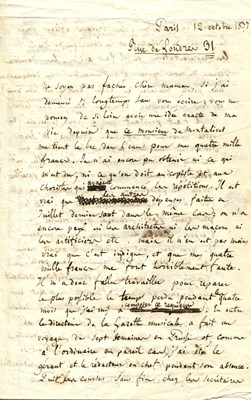 Paris 12 octobre 1837
Rue de Londres 31
Ne soyez pas fachée, chère maman, si j'ai
demeuré si longtemps sans vous écrire; vous ne
pouvez de si loin avoir une idée exacte de ma
vie depuis que ce monsieur de Montalivet
me tient le bec dans l'eau pour mes quatre mille
francs. Je n'ai encore pu obtenir ni ce qui
m'est du, ni ce qu'on doit au copiste et aux
choristes qui avaient commencé les répétitions. Il est
vrai que les autres dépenses faites en
Juillet dernier sont dans le même cas, on n'a
encore payé ni les architectes ni les maçons ni
les artificiers etc mais il n'en est pas moins
vrai que c'est inique, et que mes quatre
mille francs me font horriblement faute.
Il m'a donc fallu travailler pour réparer
le plus possible le temps perdu pendant quatre
mois que j'ai mis à composer ce requiem. En outre
le directeur de la Gazette musicale a fait un
voyage de sept semaines en Prusse et comme
à l'ordinaire en pareil cas, j'ai été le
gérant et le rédacteur en chef pendant son absence.
Puis les courses sans fin, chez les secrétaires